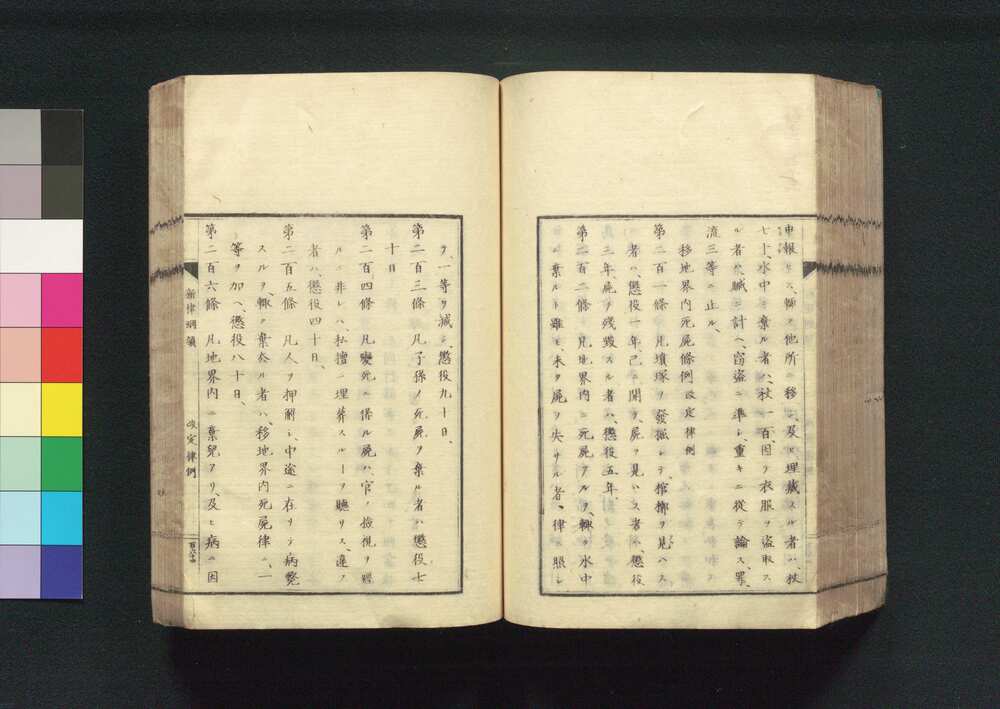 申報セス、輙ク他所ニ移シ、及ヒ埋蔵スル者ハ、杖
七十、水中ニ棄ル者ハ、杖一百、因テ衣服ヲ盗取ス
ル者ハ、贓ニ計ヘ、窃盗ニ準シ、重キニ従テ論ス、罪、
流三等ニ止ル、
移地界内死屍條例 改定律例
第二百一條 凡墳塚ヲ發掘シテ、棺槨ヲ見ハス
者ハ、懲役一年、已ニ開テ、屍ヲ見ハス者ハ、懲役
三年、屍ヲ残毀スル者ハ、懲役五年、
第二百二條 凡地界内ニ死屍アルヲ、輙ク水中
ニ棄ルト雖モ、未タ屍ヲ失サル者ハ、律ニ照シ
テ、一等ヲ減シ、懲役九十日、
第二百三條 凡子孫ノ死屍ヲ棄ル者ハ、懲役七
十日
第二百四條 凡變死ニ係ル屍ハ、官ノ撿視ヲ經
ルニ非レハ、私擅ニ埋葬スルヿヲ聽サス、違フ
者ハ、懲役四十日、
第二百五條 凡人ヲ押解シ、中途ニ在リテ病斃
スルヲ、輙ク棄去ル者ハ、移地界内死屍律ニ、一
等ヲ加ヘ、懲役八十日、
第二百六條 凡地界内ニ棄兒アリ、及ヒ病ニ因
新律綱領 改定律例